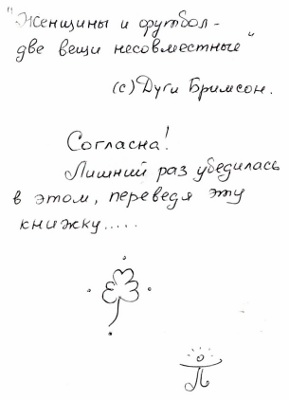 "Женщины и футбол -
две вещи несовместные"
(с) Дуги Бримсон.
Согласна!
Лишний раз убедилась
в этом, переведя эту
книжку.....